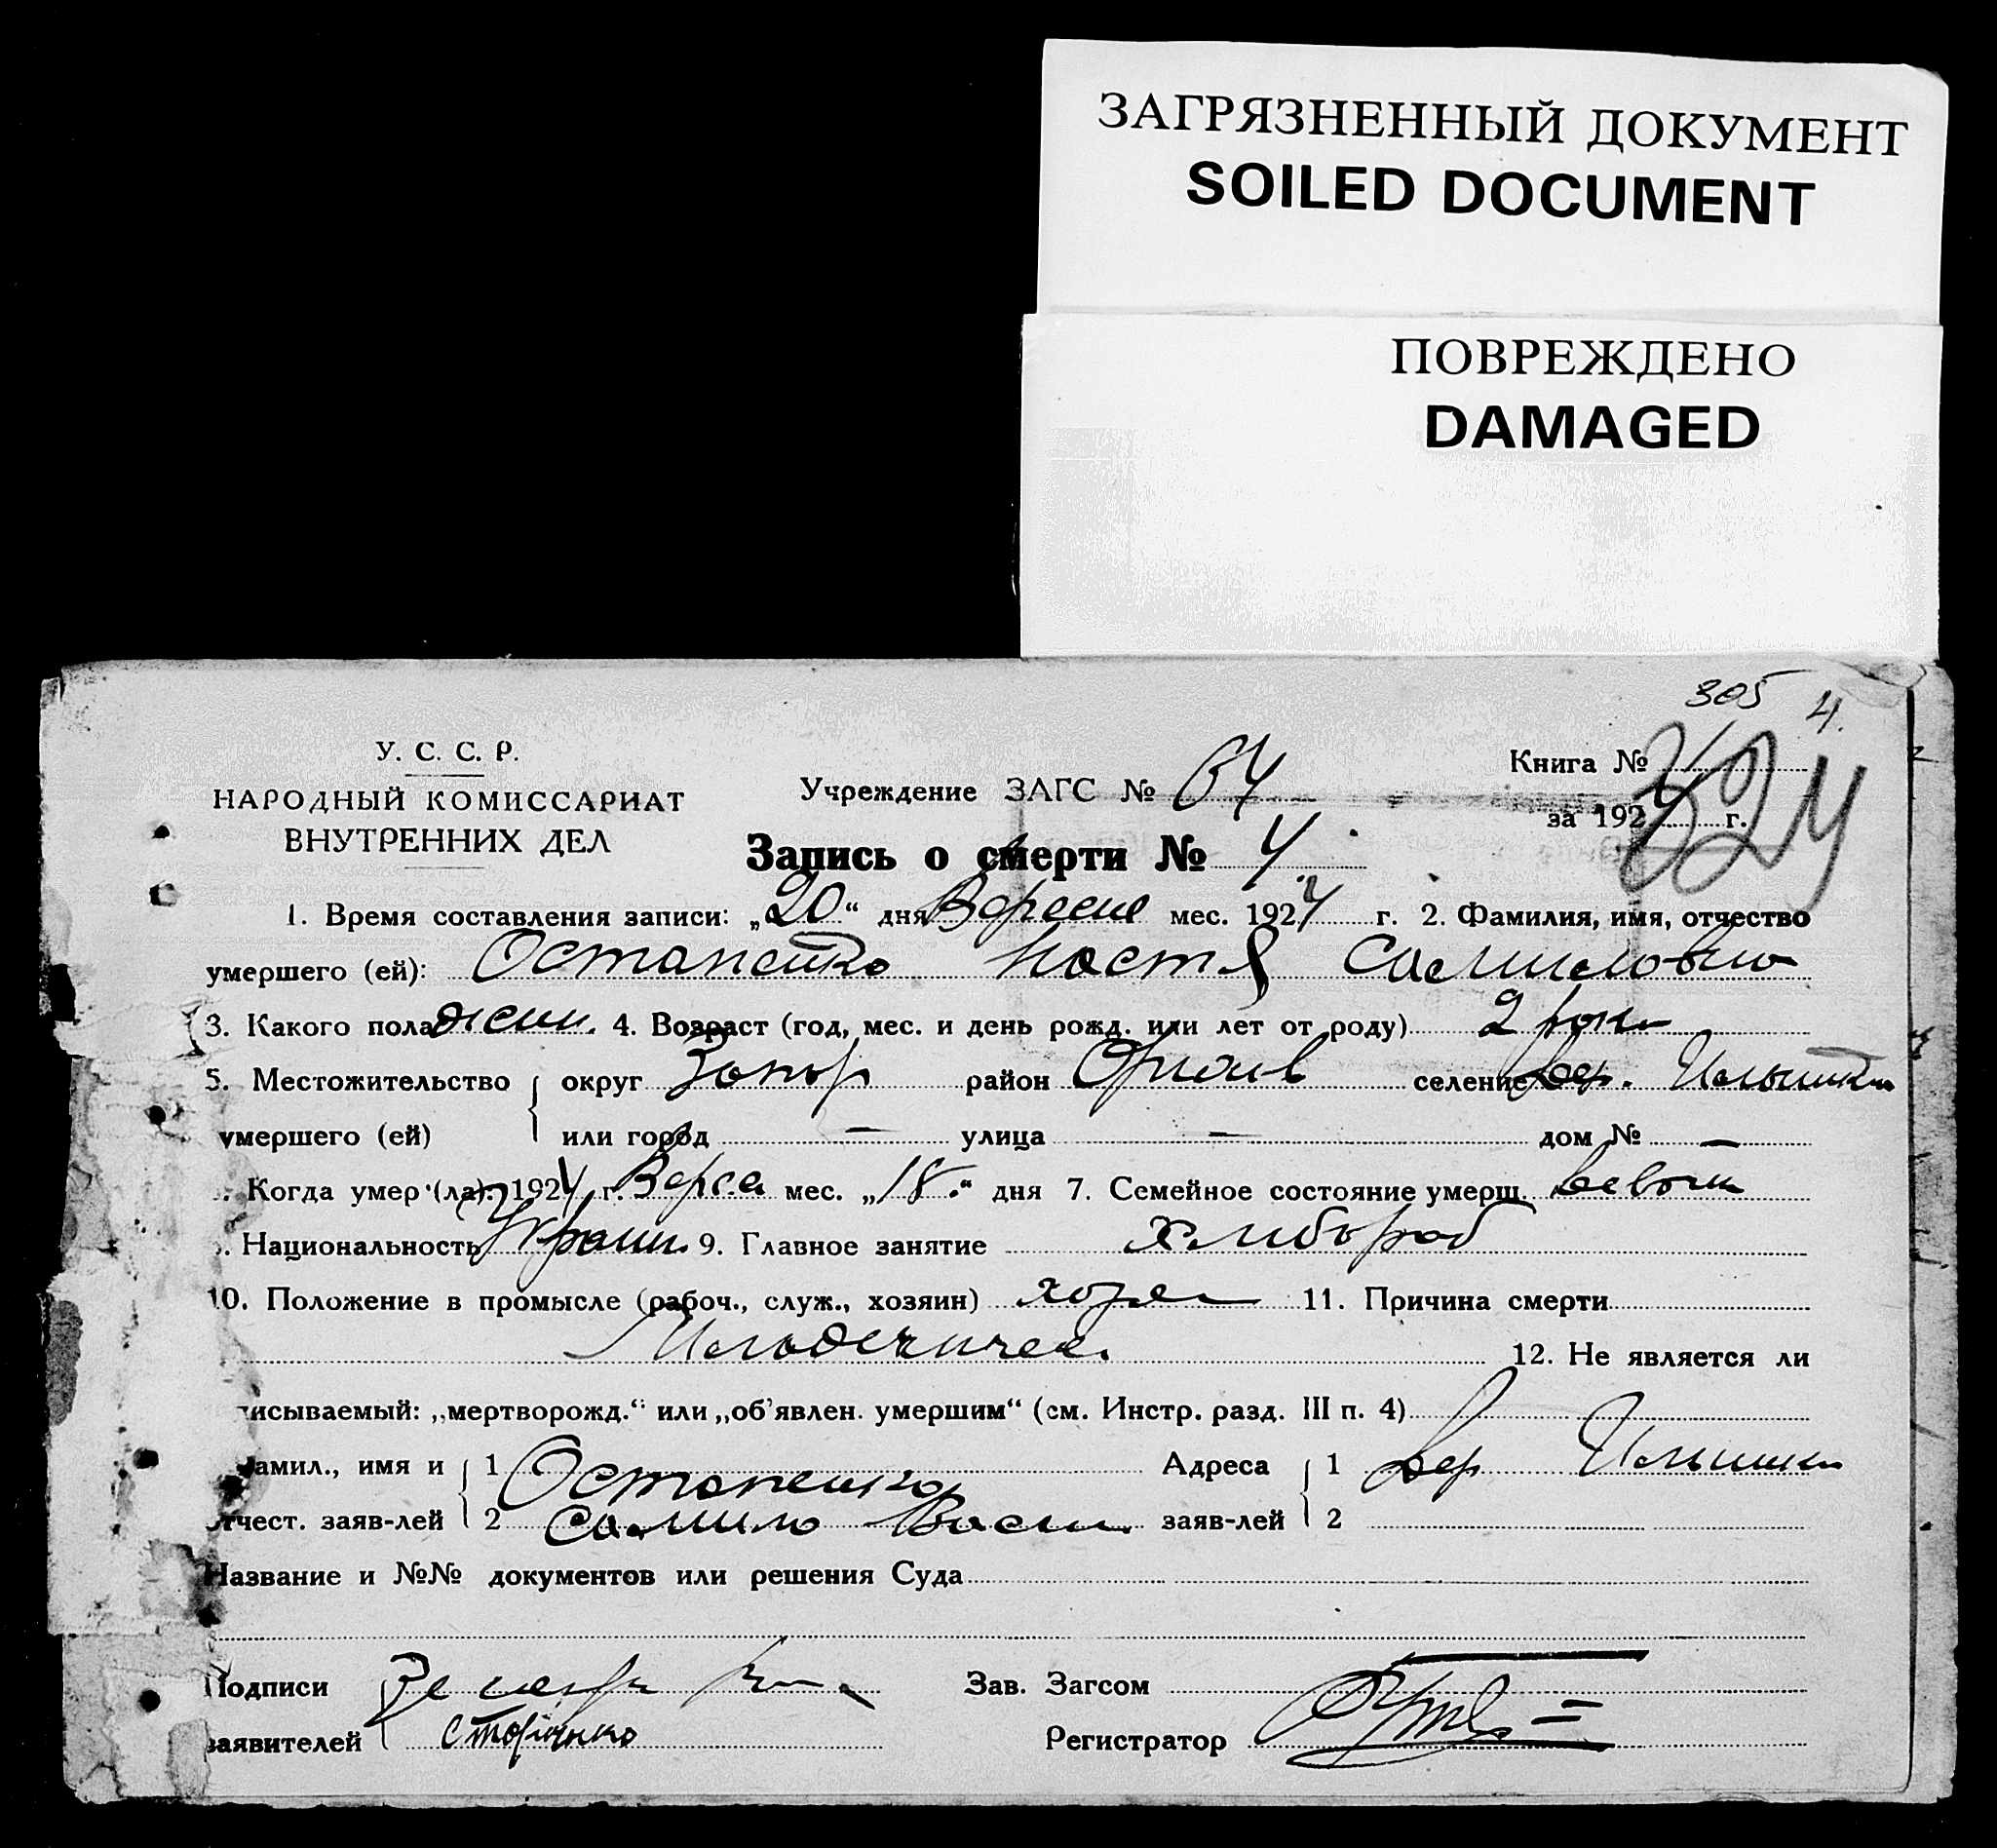 ЗАГРЯЗНЕННЫЙ ДОКУМЕНТ
SOILED DOCUMENT
ПОВРЕЖДЕНО
DAMAGED
305 4.
У. С. С. Р.
НАРОДНЫЙ КОМИССАРИАТ
ВНУТРЕННИХ ДЕЛ
Учреждение ЗАГС №
Книга №
за 1924 г.
324
Запись о смерти № 4
1. Время составления записи: „20“ дня Вересня мес. 1924 г. 2. Фамилия, имя, отчество
умершего (ей): Остапенко Настя Самиловно
3. Какого пола жен. 4. Возраст (год, мес. и день рожд. или лет от роду) 2 роки
5. Местожительство округ Запор район Оріхів селение Вер.
умершего (ей) или город — улица — дом № —
Когда умер (ла): 1924 г. Верес мес. „18“ дня 7. Семейное состояние умерш.
Национальность Украин. 9. Главное занятие хлибороб
10. Положение в промысле (рабоч., служ., хозяин) хозяе 11. Причина смерти
12. Не является ли
исываемый: „мертворожд.“ или „об'явлен. умершим“ (см. Инстр. разд. III п. 4)
амил., имя и 1 Остапенко Адреса 1 Вер
отчест. заяв-лей 2 Самило Васил заяв-лей 2
Название и №№ документов или решения Суда
Подписи Зав. Загсом
заявителей Регистратор